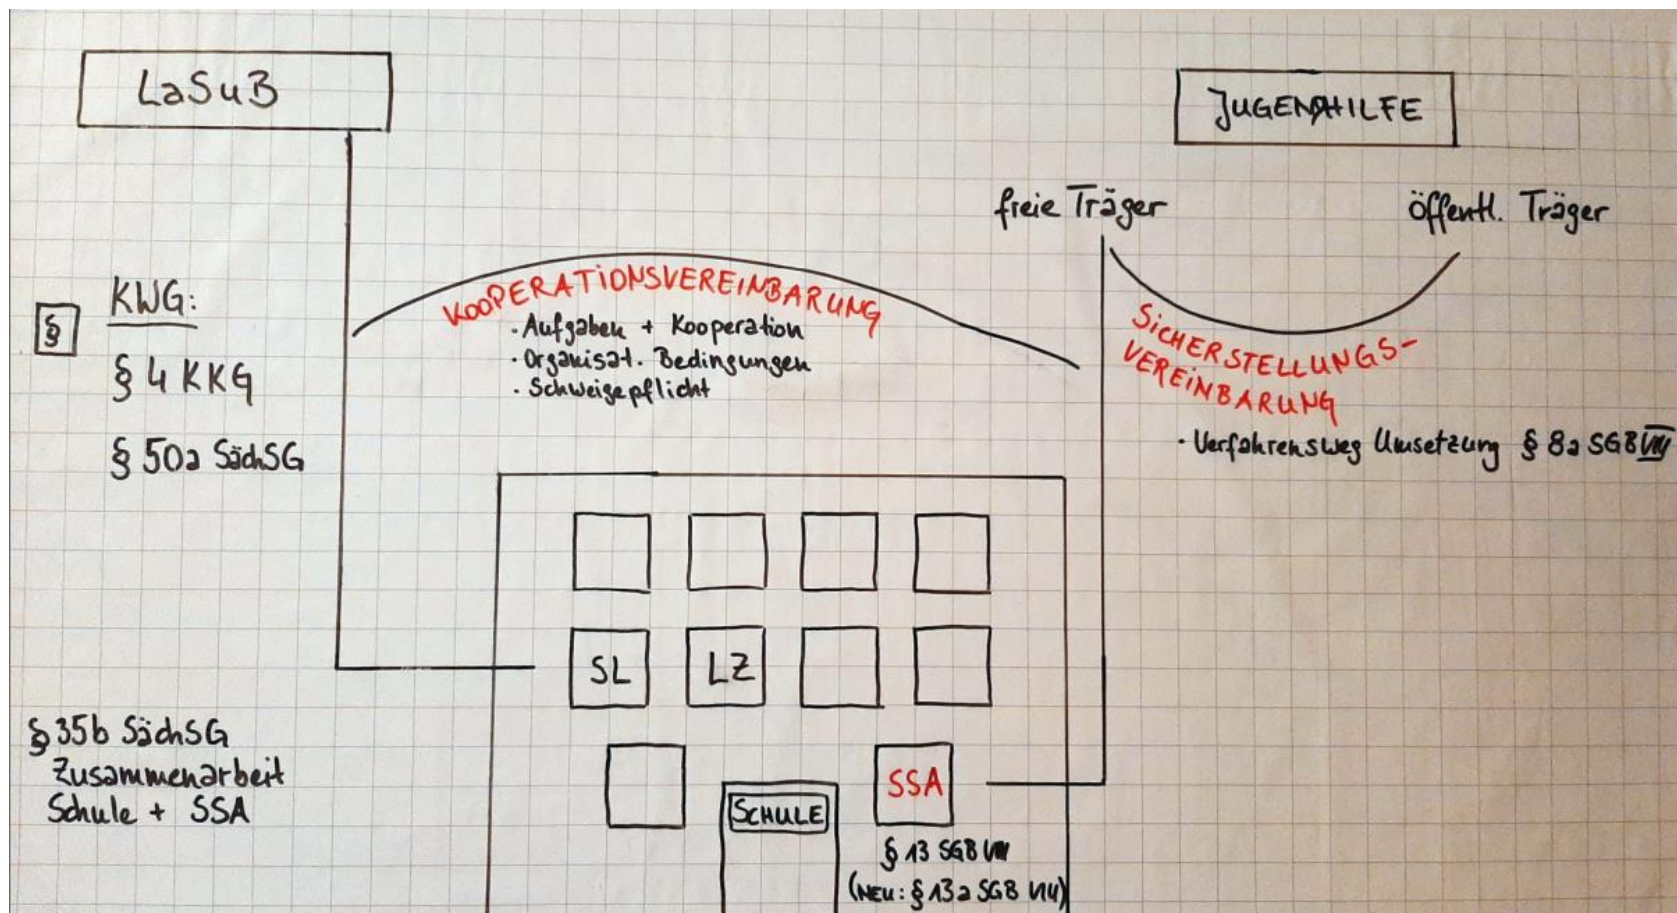 LaSuB
JUGENDHILFE
freie Träger
öffentl. Träger
KOOPERATIONSVEREINBARUNG
· Aufgaben + Kooperation
· Organisat. Bedingungen
· Schweigepflicht
SICHERSTELLUNGS-
VEREINBARUNG
· Verfahrensweg Umsetzung § 8a SGB VIII
§
KWG:
§ 4 KKG
§ 50a SächSG
SL
LZ
§ 35b SächSG
Zusammenarbeit
Schule + SSA
SSA
SCHULE
§ 13 SGB VIII
(NEU: § 13a SGB VIII)